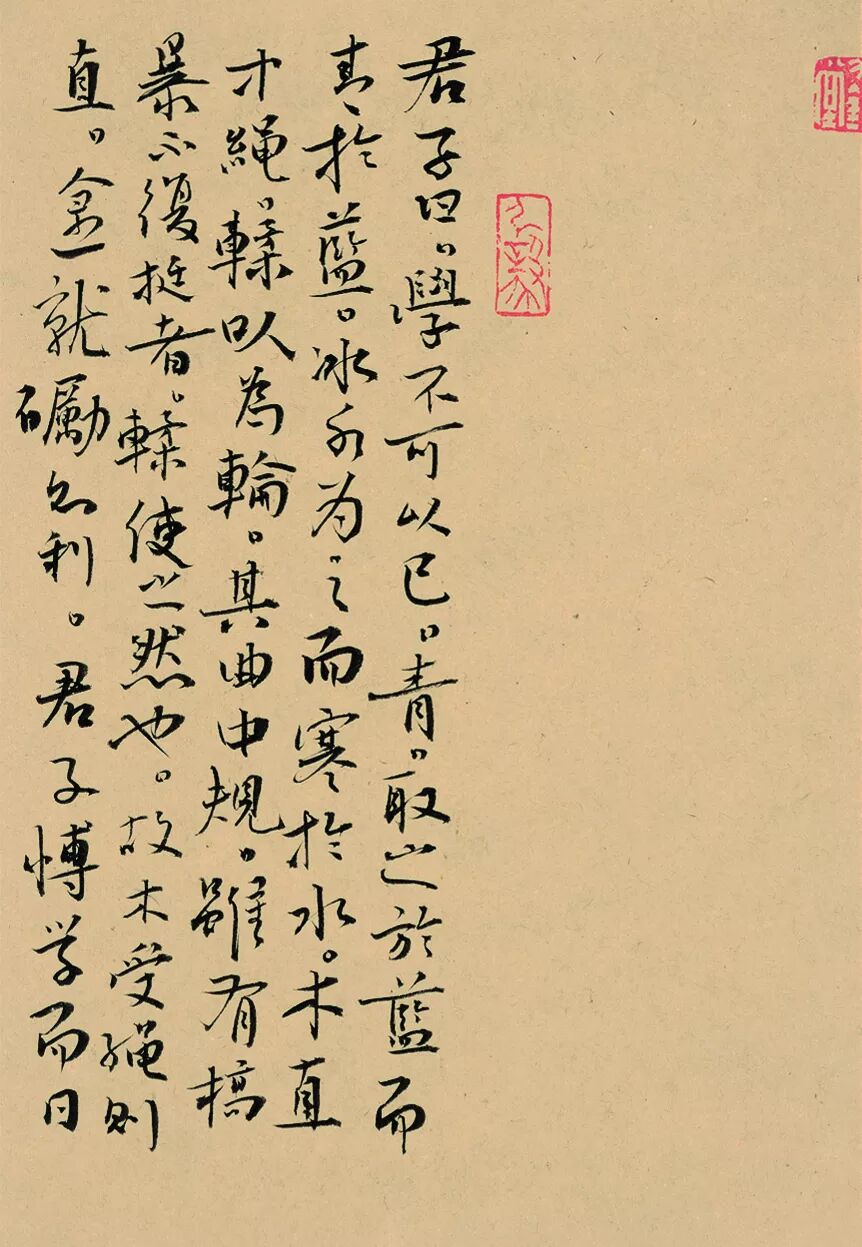 君子曰。學不可以已。青。取之於藍而
青於藍。冰水为之而寒於水。木直
中繩。輮以為輪。其曲中規。雖有槁
暴不復挺者。輮使之然也。故木受绳则
直。金就礪则利。君子博学而日